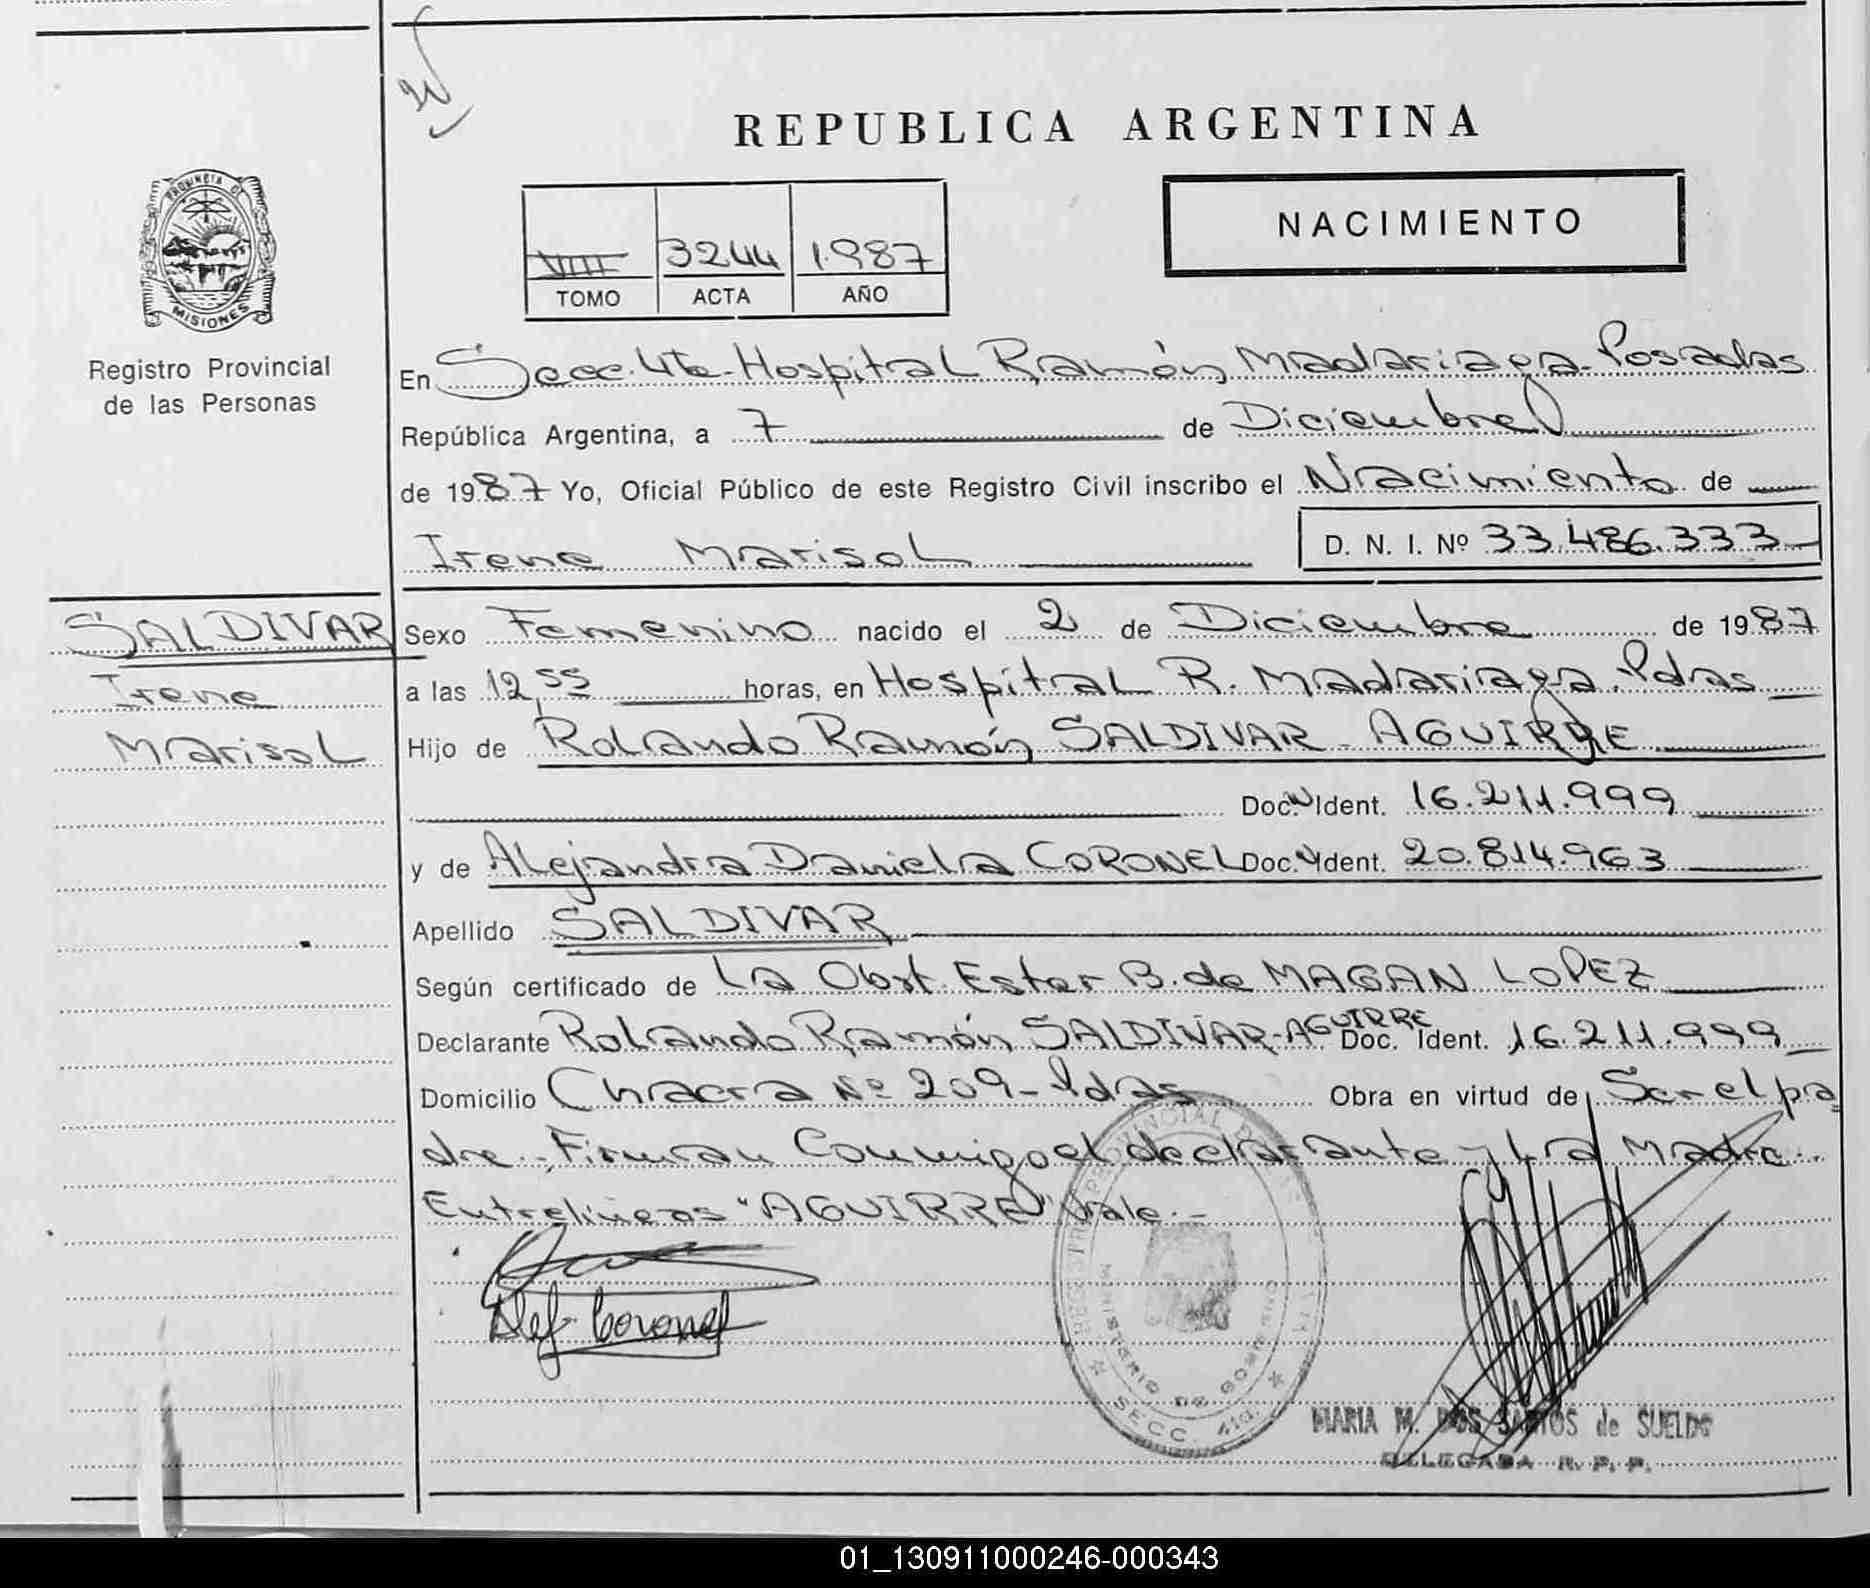 REPUBLICA ARGENTINA
NACIMIENTO
VIII 3244 1987
TOMO ACTA AÑO
PROVINCIA DE
MISIONES
Registro Provincial
de las Personas
En Secc. 4ta - Hospital Ramón Madariaga - Posadas
República Argentina, a 7 de Diciembre
de 1987 Yo, Oficial Público de este Registro Civil inscribo el Nacimiento de
Irene Marisol D. N. I. Nº 33.486.333
SALDIVAR
Irene
Marisol
Sexo Femenino nacido el 2 de Diciembre de 1987
a las 12,55 horas, en Hospital R. Madariaga. Pdas
Hijo de Rolando Ramón SALDIVAR - AGUIRRE
Doc. Ident. 16.211.999
y de Alejandra Daniela CORONEL Doc. Ident. 20.814.963
Apellido SALDIVAR
Según certificado de La Obst. Ester B. de MAGAN LOPEZ
Declarante Rolando Ramón SALDIVAR - AGUIRRE Doc. Ident. 16.211.999
Domicilio Chacra Nº 209 - Pdas Obra en virtud de Ser el pa
dre. Firman Conmigo el declarante y La Madre.
Entrelíneas "AGUIRRE" Vale. -
Alej. Coronel
MINISTERIO DE GOBIERNO
SECC. 4ta.
MARIA M. DOS SANTOS de SUELDO
DELEGADA R. P. P.
01_130911000246-000343